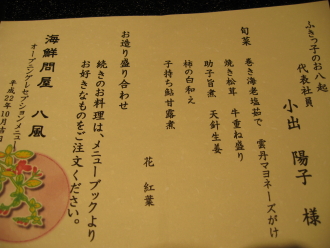 ふきっ子のお八起
代表社員
小出 陽子 様
旬菜
巻き海老塩茹で 雲丹マヨネーズがけ
焼き松茸 牛重ね盛り
助子旨煮 天針生姜
柿の白和え
子持ち鮎甘露煮
花 紅葉
お造り盛り合わせ
続きのお料理は、メニューブックより
お好きなものをご注文ください。
海鮮問屋 八風
オープニングレセプションメニュー
平成22年10月吉日